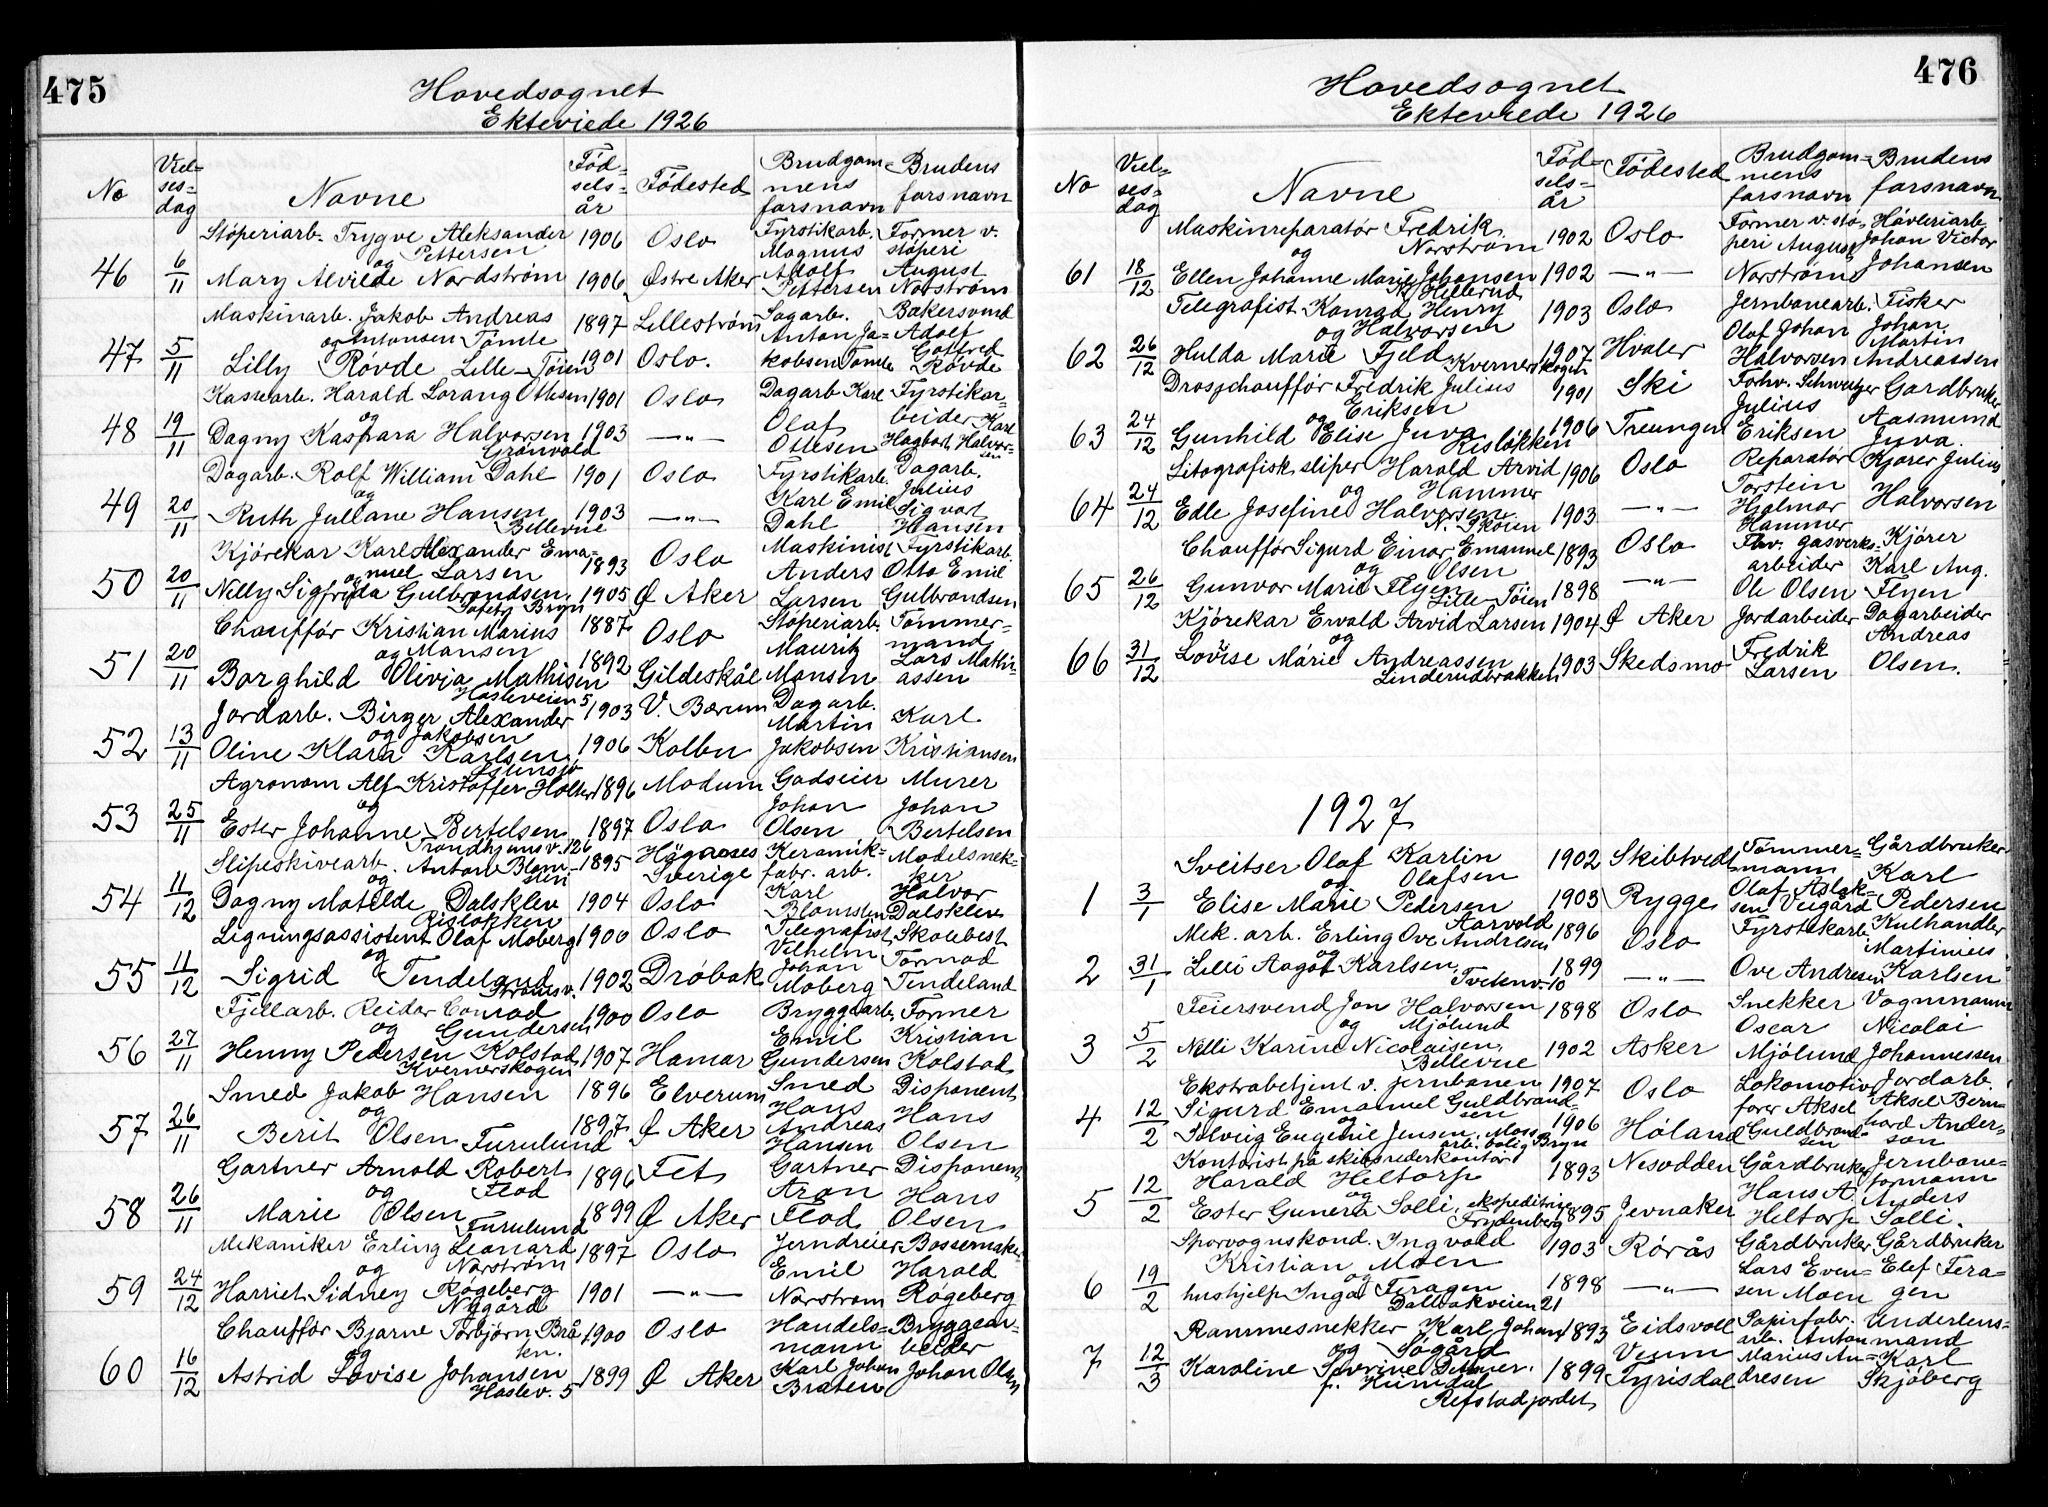 475
Hovedsognet
Ekteviede 1926
No
Viel-
ses-
dag
Navne
Fød-
sels-
år
Fødested
Brudgom-
mens
farsnavn
Brudens
farsnavn
46 6/11
Støperiarb. Trygve Aleksander 1906 Oslo Fyrstikarb. Former v.
og Pettersen Magnus støperi
Mary Alvilde Nordstrøm 1906 Østre Aker Adolf August
Pettersen Norstrøm
47 5/11
Maskinarb. Jakob Andreas 1897 Lillestrøm Sagarb. Bakersvend
og Antonsen Tomte Anton Ja- Adolf
Lilly Røvde Lille-Tøien 1901 Oslo. kobsen Tomte Gotfred
Røvde
48 19/11
Kassearb. Harald Lorang Ottesen 1901 Oslo Dagarb. Karl Fyrstikar-
og Olaf beider Karl
Dagny Kaspara Halvorsen 1903 —"— Ottesen Hagbart Halvor-
Grønvold sen
49 20/11
Dagarb. Rolf William Dahl 1901 Oslo Fyrstikarb. Dagarb.
og Karl Emil Julius
Ruth Juliane Hansen 1903 —"— Dahl Sigvart
Bellevue Hansen
50 20/11
Kjørekar Karl Alexander Ema- 1893 Oslo Maskinist Fyrstikarb.
og nuel Larsen Anders Otto Emil
Nelly Sigfrida Gulbrandsen. 1905 Ø Aker Larsen Gulbrandsen
Tofety Bryn
51 20/11
Chauffør Kristian Marius 1887 Oslo Støperiarb. Tømmer-
og Mansen Mauritz mand
Borghild Olivia Mathisen 1892 Gildeskål Monsen Lars Mathi-
Hasleveien 5 assen
52 13/11
Jordarb. Birger Alexander 1903 V. Bærum Dagarb.
og Jakobsen Martin Karl
Oline Klara Karlsen 1906 Kolbu Jakobsen Kristiansen
53 25/11
Agronom Alf Kristoffer Holter 1896 Modum Godseier Murer
og Johan Johan
Ester Johanne Bertelsen 1897 Oslo Olsen Bertelsen
Trondhjemsv. 126
54 11/12
Slipeskivearb. Anton Blom- 1895 Hägnoses Keramik- Modelsnek-
og sten Sverige fabr. arb. ker
Dagny Matilde Dalsklev 1904 Oslo Karl Halvor
Risløkken Blomsten Dalsklev
55 11/12
Ligningsassistent Olaf Moberg 1900 Oslo Telegrafist Skoubest
og Vilhelm Tormod
Sigrid Tendeland 1902 Drøbak Johan Tendeland
Strømsv. Moberg
56 27/11
Fjellarb. Reidar Conrad 1900 Oslo Bryggearb. Former
og Gundersen Emil Kristian
Henny Pedersen Kolstad 1907 Hamar Gundersen Kolstad
Kvernerskogen
57 26/11
Smed Jakob Hansen 1896 Elverum Smed Disponent
og Hans Hans
Berit Olsen Furulund 1897 Ø Aker Andreas
Hansen Olsen
58 26/11
Gartner Arnold Robert 1896 Fet Gartner Disponent
og Flod Aron Hans
Marie Olsen 1899 Ø Aker Flod Olsen
Furulund
59 24/12
Mekaniker Erling Leonard 1897 Oslo Jerndreier Bossemaker
og Norstrøm Emil Harald
Harriet Sidney Røgeberg 1901 —"— Norstrøm Røgeberg
Nygård
60 16/12
Chauffør Bjarne Torbjørn Brå- 1900 Oslo Handels- Bryggear-
og ten. mann beider
Astrid Lovise Johansen 1899 Ø Aker Karl Johan Johan Olsen
Haslev. 5 Braten
476
Hovedsognet
Ekteviede 1926
No
Viel-
ses-
dag
Navne
Fød-
sels-
år
Fødested
Brudgom-
mens
farsnavn
Brudens
farsnavn
61 18/12
Maskinreparatør Fredrik 1902 Oslo Former v. stø- Høvleriarb.
og Norstrøm peri August Johan Victor
Ellen Johanne Marie Johansen 1902 —"— Norstrøm Johansen
Hellerud
62 26/12
Telegrafist Konrad Henry 1903 Oslo Jernbanearb. Fisker
og Halvorsen Olaf Johan Johan
Hulda Marie Fjeld 1907 Hvaler Halvorsen Martin
Kvernerskogen Andreassen
63 24/12
Drosjchauffør Fredrik Julius 1901 Ski Forhv. Schweitzer Gardbruker
og Eriksen Julius Aasmund
Gunhild Elise Juva 1906 Treungen Eriksen Juva.
Risløkken
64 24/12
Litografisk sliper Harald Arvid 1906 Oslo Reparatør Kjører Julius
og Hammer Torstein
Edle Josefine Halvorsen 1903 —"— Hjalmar Halvorsen
N. Skøien Hammer
65 26/12
Chauffør Sigurd Einar Emanuel 1893 Oslo Fhv. gasverks- Kjører
og Olsen arbeider Karl Aug.
Gunvor Marie Flyen 1898 —"— Ole Olsen Flyen
Lille Tøien
66 31/12
Kjørekar Ewald Arvid Larsen 1904 Ø Aker Jordarbeider Dagarbeider
og Fredrik Andreas
Lovise Marie Andreassen 1903 Skedsmo Larsen Olsen.
Linderudbrakken
1927
1 3/1
Sveitser Olaf Karlin 1902 Skibtvedt Tømmer- Gårdbruker
og Olafsen mann Karl
Elise Marie Pedersen 1903 Rygge Olaf Aslak- Pedersen
Aarvold sen Veigård
2 31/1
Mek. arb. Erling Ove Andresen 1896 Oslo Fyrstikarb. Kulhandler
og Martinius
Lilli Aagot Karlsen 1899 —"— Ove Andresen Karlsen
Tvetenv. 10
3 5/2
Feiersvend Jon Halvorsen 1898 Oslo Snekker Vognmann
og Mjølund Oscar Nicolai
Nelli Karine Nicolaisen 1902 Asker Mjølund Johannessen
Bellevue
4 12/2
Ekstrabetjent v. jernbanen 1907 Oslo Lokomotiv- Jordarb.
Sigurd Emanuel Guldbrand- fører Aksel Aksel Bern-
og sen
Solveig Eugenie Jensen, Moss 1906 Høland Guldbrand- hard Ander-
arb. bolig Bryn sen son
5 12/2
Kontorist på skibsrederkontor 1893 Nesodden Gårdbruker Jernbane-
Harald Heltorp Hans A. formann
og Heltorp Anders
Ester Gunera Solli, ekspeditrise 1895 Jevnaker Solli.
Frydenberg
6 19/2
Sporvognskond. Ingvald 1903 Rørås Gårdbruker Gårdbruker
Kristian Moen Lars Even- Elef Fera-
og
hushjelp Inga Feragen 1898 —"— sen Moen gen
Dalbakveien 21
7 12/3
Rammesnekker Karl Johan 1893 Eidsvoll Papirfabr. Underlens-
og Søgård Veum arb. Anton mand
Karoline Severine Dettmer. 1899 Fyrisdal Marius An- Karl
f. Kumdal dresen Skjøberg
Refstadjordet